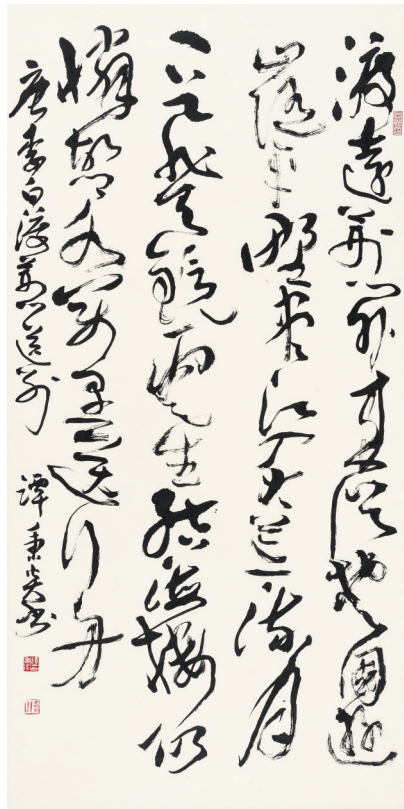 渡遠荊門外來從楚國遊
山隨平野盡江入大荒流月
下飛天鏡雲生結海樓仍
憐故鄉水萬里送行舟
唐李白渡荊門送別 譚秉炎書